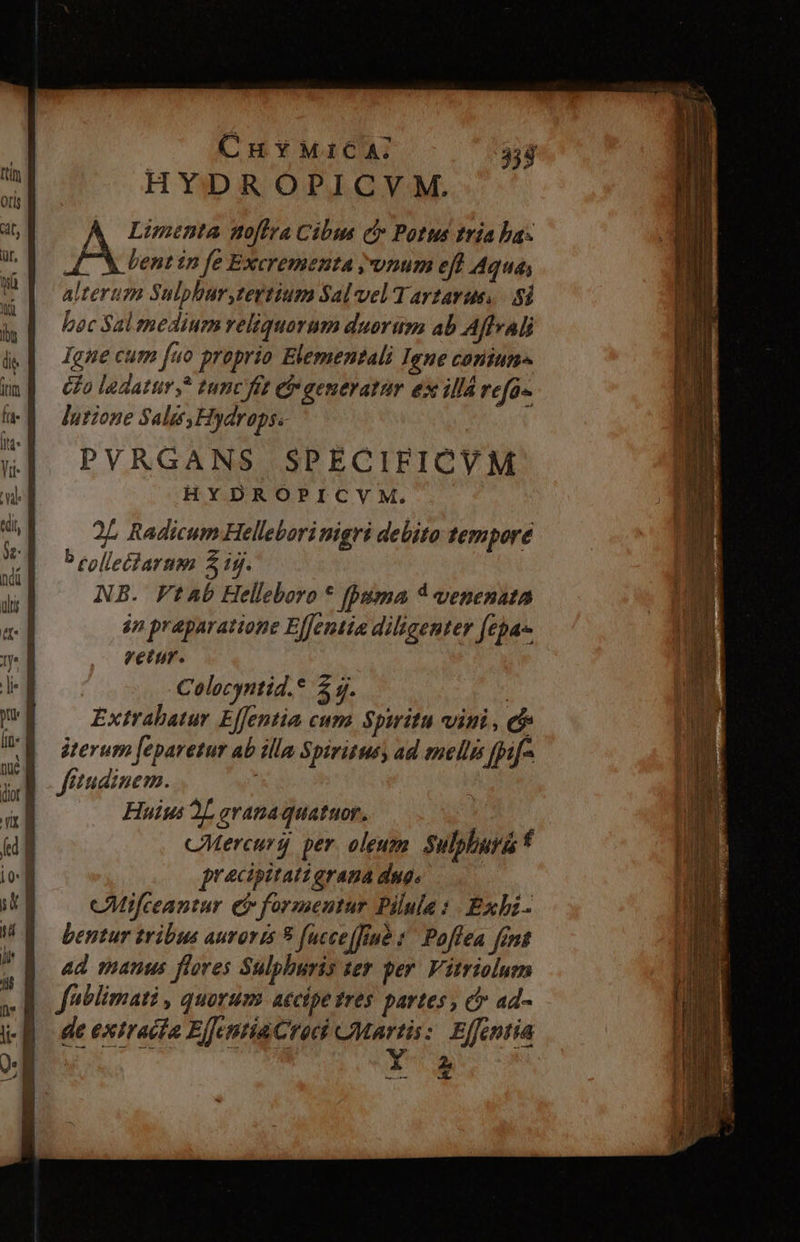 CHYMICA. 339
HYDROPICVM.
ALimenta noſtra Cibus & Potus tria ha-
bent in ſe Excrementa, vnum eſt Aqua,
alterum Sulphur, tertium Sal vel Tartarus. Si
hoc Sal medium reliquorum duorum ab Aſtrali
Igne cum ſuo proprio Elementali Igne coniun-
cto lædatur,ᵃ tunc fit & generatur ex illâ reſo-
lutione Salis, Hydrops.
PVRGANS SPECIFICVM
HYDROPICVM.
♃ Radicum Hellebori nigri debito tempore
ᵇ collectarum ℥ iij.
NB. Vt ab Helleboro ᶜ ſpuma ᵈ venenata
in præparatione Eſſentiæ diligenter ſepa-
retur.
Colocyntid.ᵉ ℥ ij.
Extrahatur Eſſentia cum Spiritu vini, &
iterum ſeparetur ab illa Spiritus, ad mellis ſpiſ-
ſitudinem.
Huius ♃ grana quatuor.
Mercurij per oleum Sulphuris ᶠ
præcipitati grana duo.
Miſceantur & formentur Pilulæ: Exhi-
bentur tribus auroris ᵍ ſucceſſiuè: Poſtea ſint
ad manus flores Sulphuris ter per Vitriolum
ſublimati, quorum accipe tres partes, & ad-
de extractæ Eſſentiæ Croci Martis: Eſſentiæ
Y 2